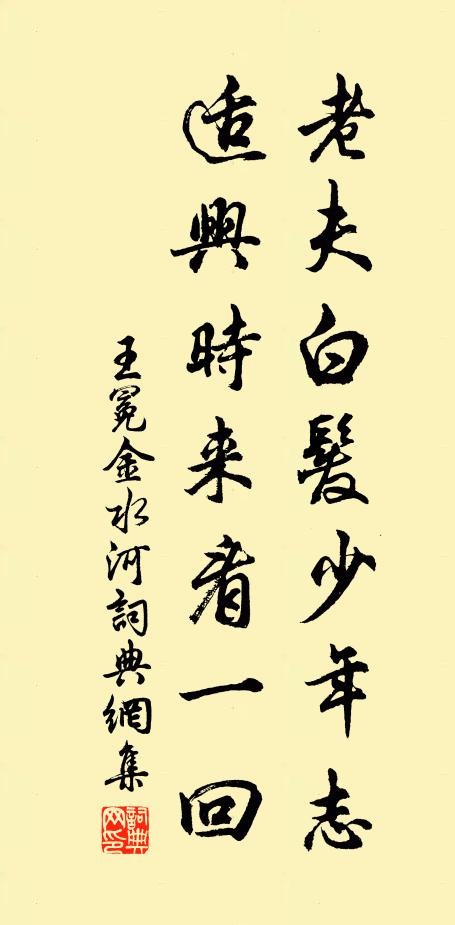 老夫白髮少年志
适興時来看一回
王冕金水河詞典網集
詞典网印